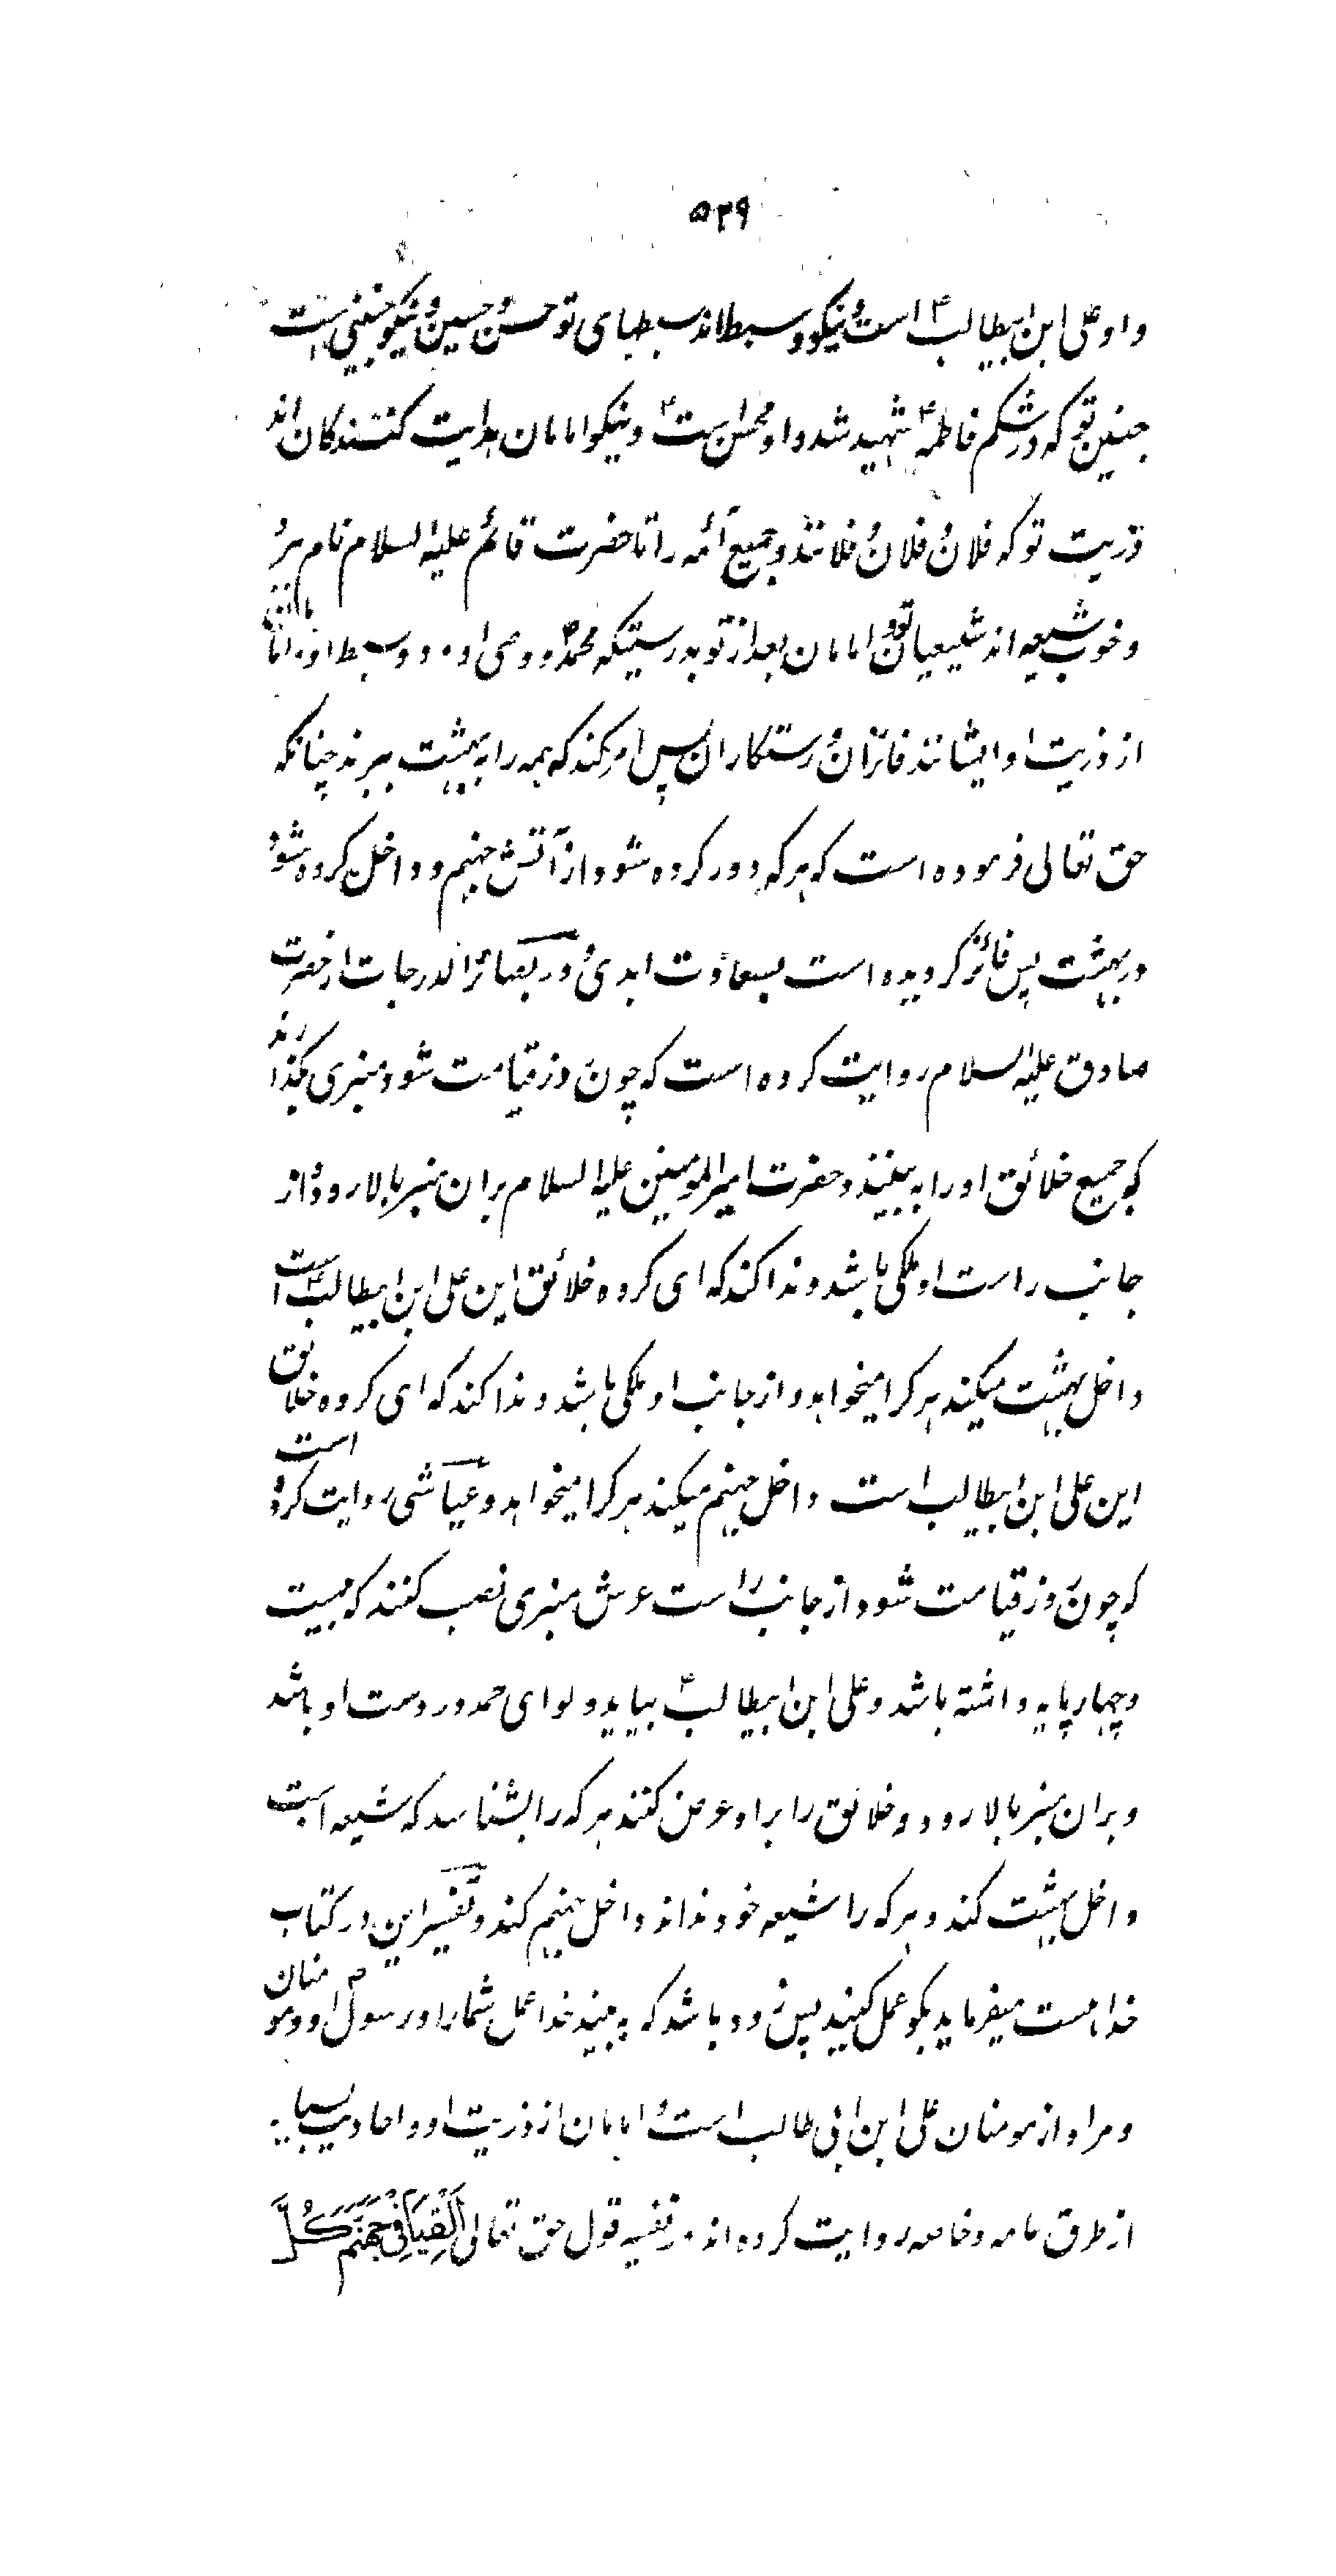 ۵۲۹
و او علی ابن ابیطالب ع است و نیکو دو سبط‌اند سبطهای تو حسن و حسین و نیکو جنینی است
جنین تو که در شکم فاطمه ع شهید شد و او محسن است ع و نیکو امامان هدایت کنندکان اند
ذریت تو که فلان و فلان و فلانند و جمیع آئمه را تا حضرت قائم علیه السلام نام برد
و خوب شیعه اند شیعیان تو و امامان بعد از تو بدرستیکه محمد ص و وصی او و دو سبط او و امامان
از ذریت او ایشانند فائزان و رستکاران پس امر کند که همه را به بهشت ببرند چنانکه
حق تعالی فرموده است که هر که دور کرده شود از آتش جهنم و داخل کرده شود
در بهشت پس فائز کردیده است بسعادت ابدی و در بصائر الدرجات از حضرت
صادق علیه السلام روایت کرده است که چون روز قیامت شود منبری بگذارند
که جمیع خلائق او را به بینند و حضرت امیر المومنین علیه السلام بران منبر بالا رود و از
جانب راست او ملکی باشد و ندا کند که ای کروه خلائق این علی ابن ابیطالب ع است
داخل بهشت میکند هر کرا میخواهد و از جانب او ملکی باشد و ندا کند که ای کروه خلائق
این علی ابن ابیطالب است داخل جهنم میکند هر کرا میخواهد و عیاشی روایت کرده است
که چون روز قیامت شود از جانب راست عرش منبری نصب کنند که بیست
و چهار پایه داشته باشد و علی ابن ابیطالب ع بیاید و لوای حمد در دست او باشد
و بران منبر بالا رود و خلائق را بر او عرض کنند هر که را بشناسد که شیعه است
داخل بهشت کند و هر که را شیعه خود نداند داخل جهنم کند و تفسیر این در کتاب
خدا هست میفرماید بکو عمل کنید پس زود باشد که به بیند خدا عمل شما را و رسول ص او و مومنان
و مراد از مومنان علی ابن ابی طالب است و امامان از ذریت او و احادیث بسیار
از طرق عامه و خاصه روایت کرده اند در تفسیر قول حق تعالی اَلْقِیَا فِی جَهَنَّمَ کُلَّ